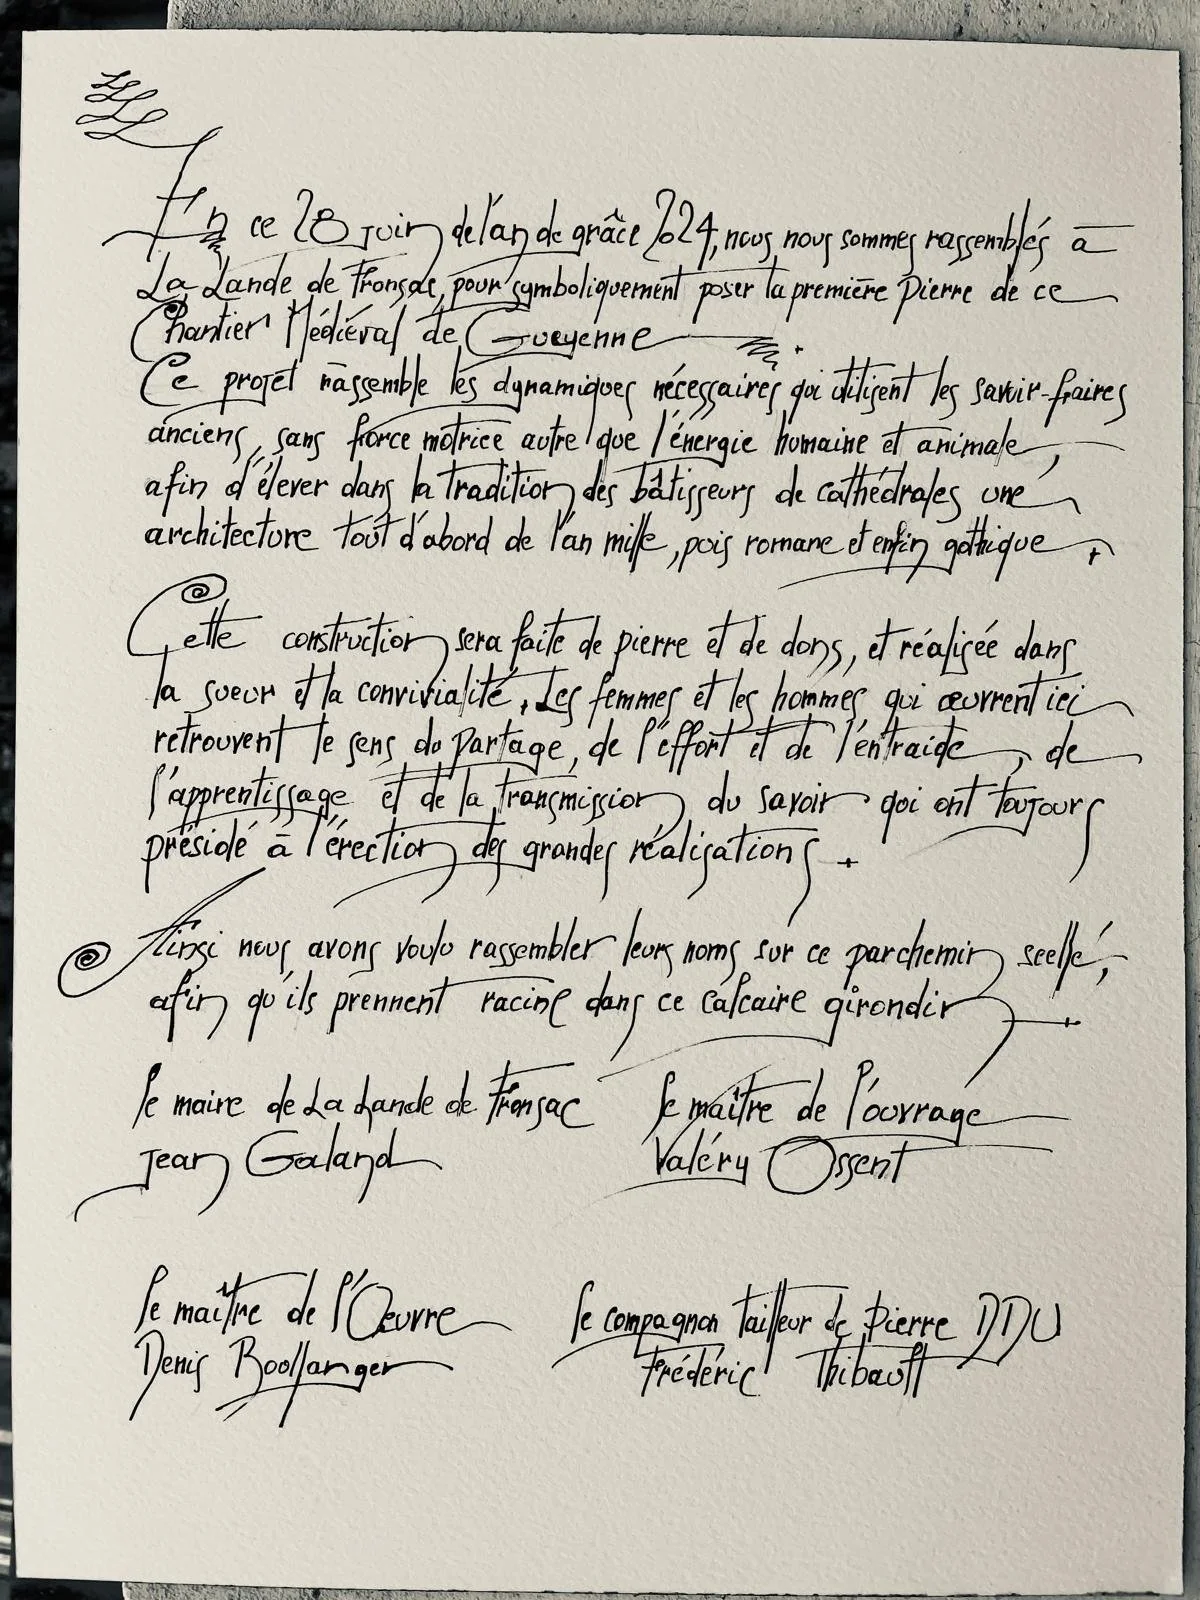 En ce 28 juin de l'an de grâce 2024, nous nous sommes rassemblés à
La Lande de Fronsac, pour symboliquement poser la première Pierre de ce
Chantier Médiéval de Gueyenne.
Ce projet rassemble les dynamiques nécessaires qui utilisent les savoir-faires
anciens, sans force motrice autre que l'énergie humaine et animale,
afin d'élever dans la tradition des bâtisseurs de cathédrales une
architecture tout d'abord de l'an mille, puis romane et enfin gothique.
Cette construction sera faite de pierre et de dons, et réalisée dans
la sueur et la convivialité. Les femmes et les hommes qui œuvrent ici
retrouvent le sens du Partage, de l'effort et de l'entraide, de
l'apprentissage et de la transmission du savoir qui ont toujours
présidé à l'érection des grandes réalisations.
Ainsi nous avons voulu rassembler leurs noms sur ce parchemin scellé,
afin qu'ils prennent racine dans ce calcaire girondin
le maire de La Lande de Fronsac le maître de l'ouvrage
Jean Galand Valéry Ossent
le maître de l'Œuvre le compagnon tailleur de Pierre DDU
Denis Boullanger Frédéric Thibault